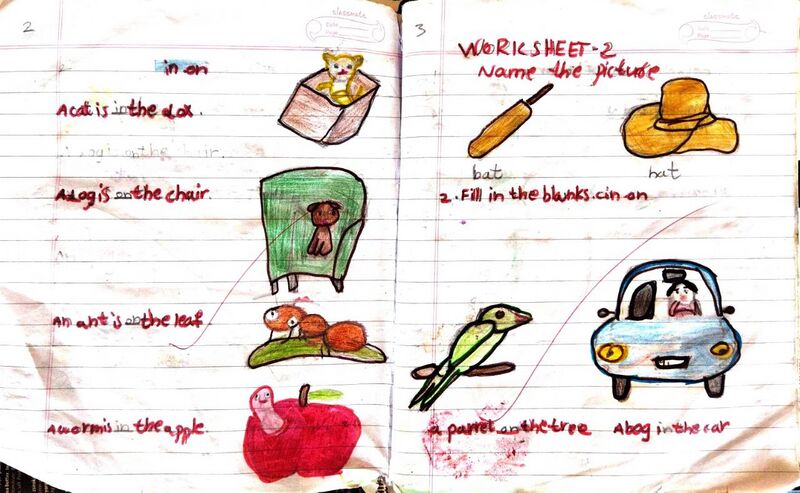 2
classmate
in on
A cat is in the dox.
A dog is on the chair.
An ant is on the leaf.
A worm is in the apple.
3
classmate
WORKSHEET-2
Name the picture
bat
hat
2. Fill in the blanks. (in on
a parrel on the tree
A bog in the car